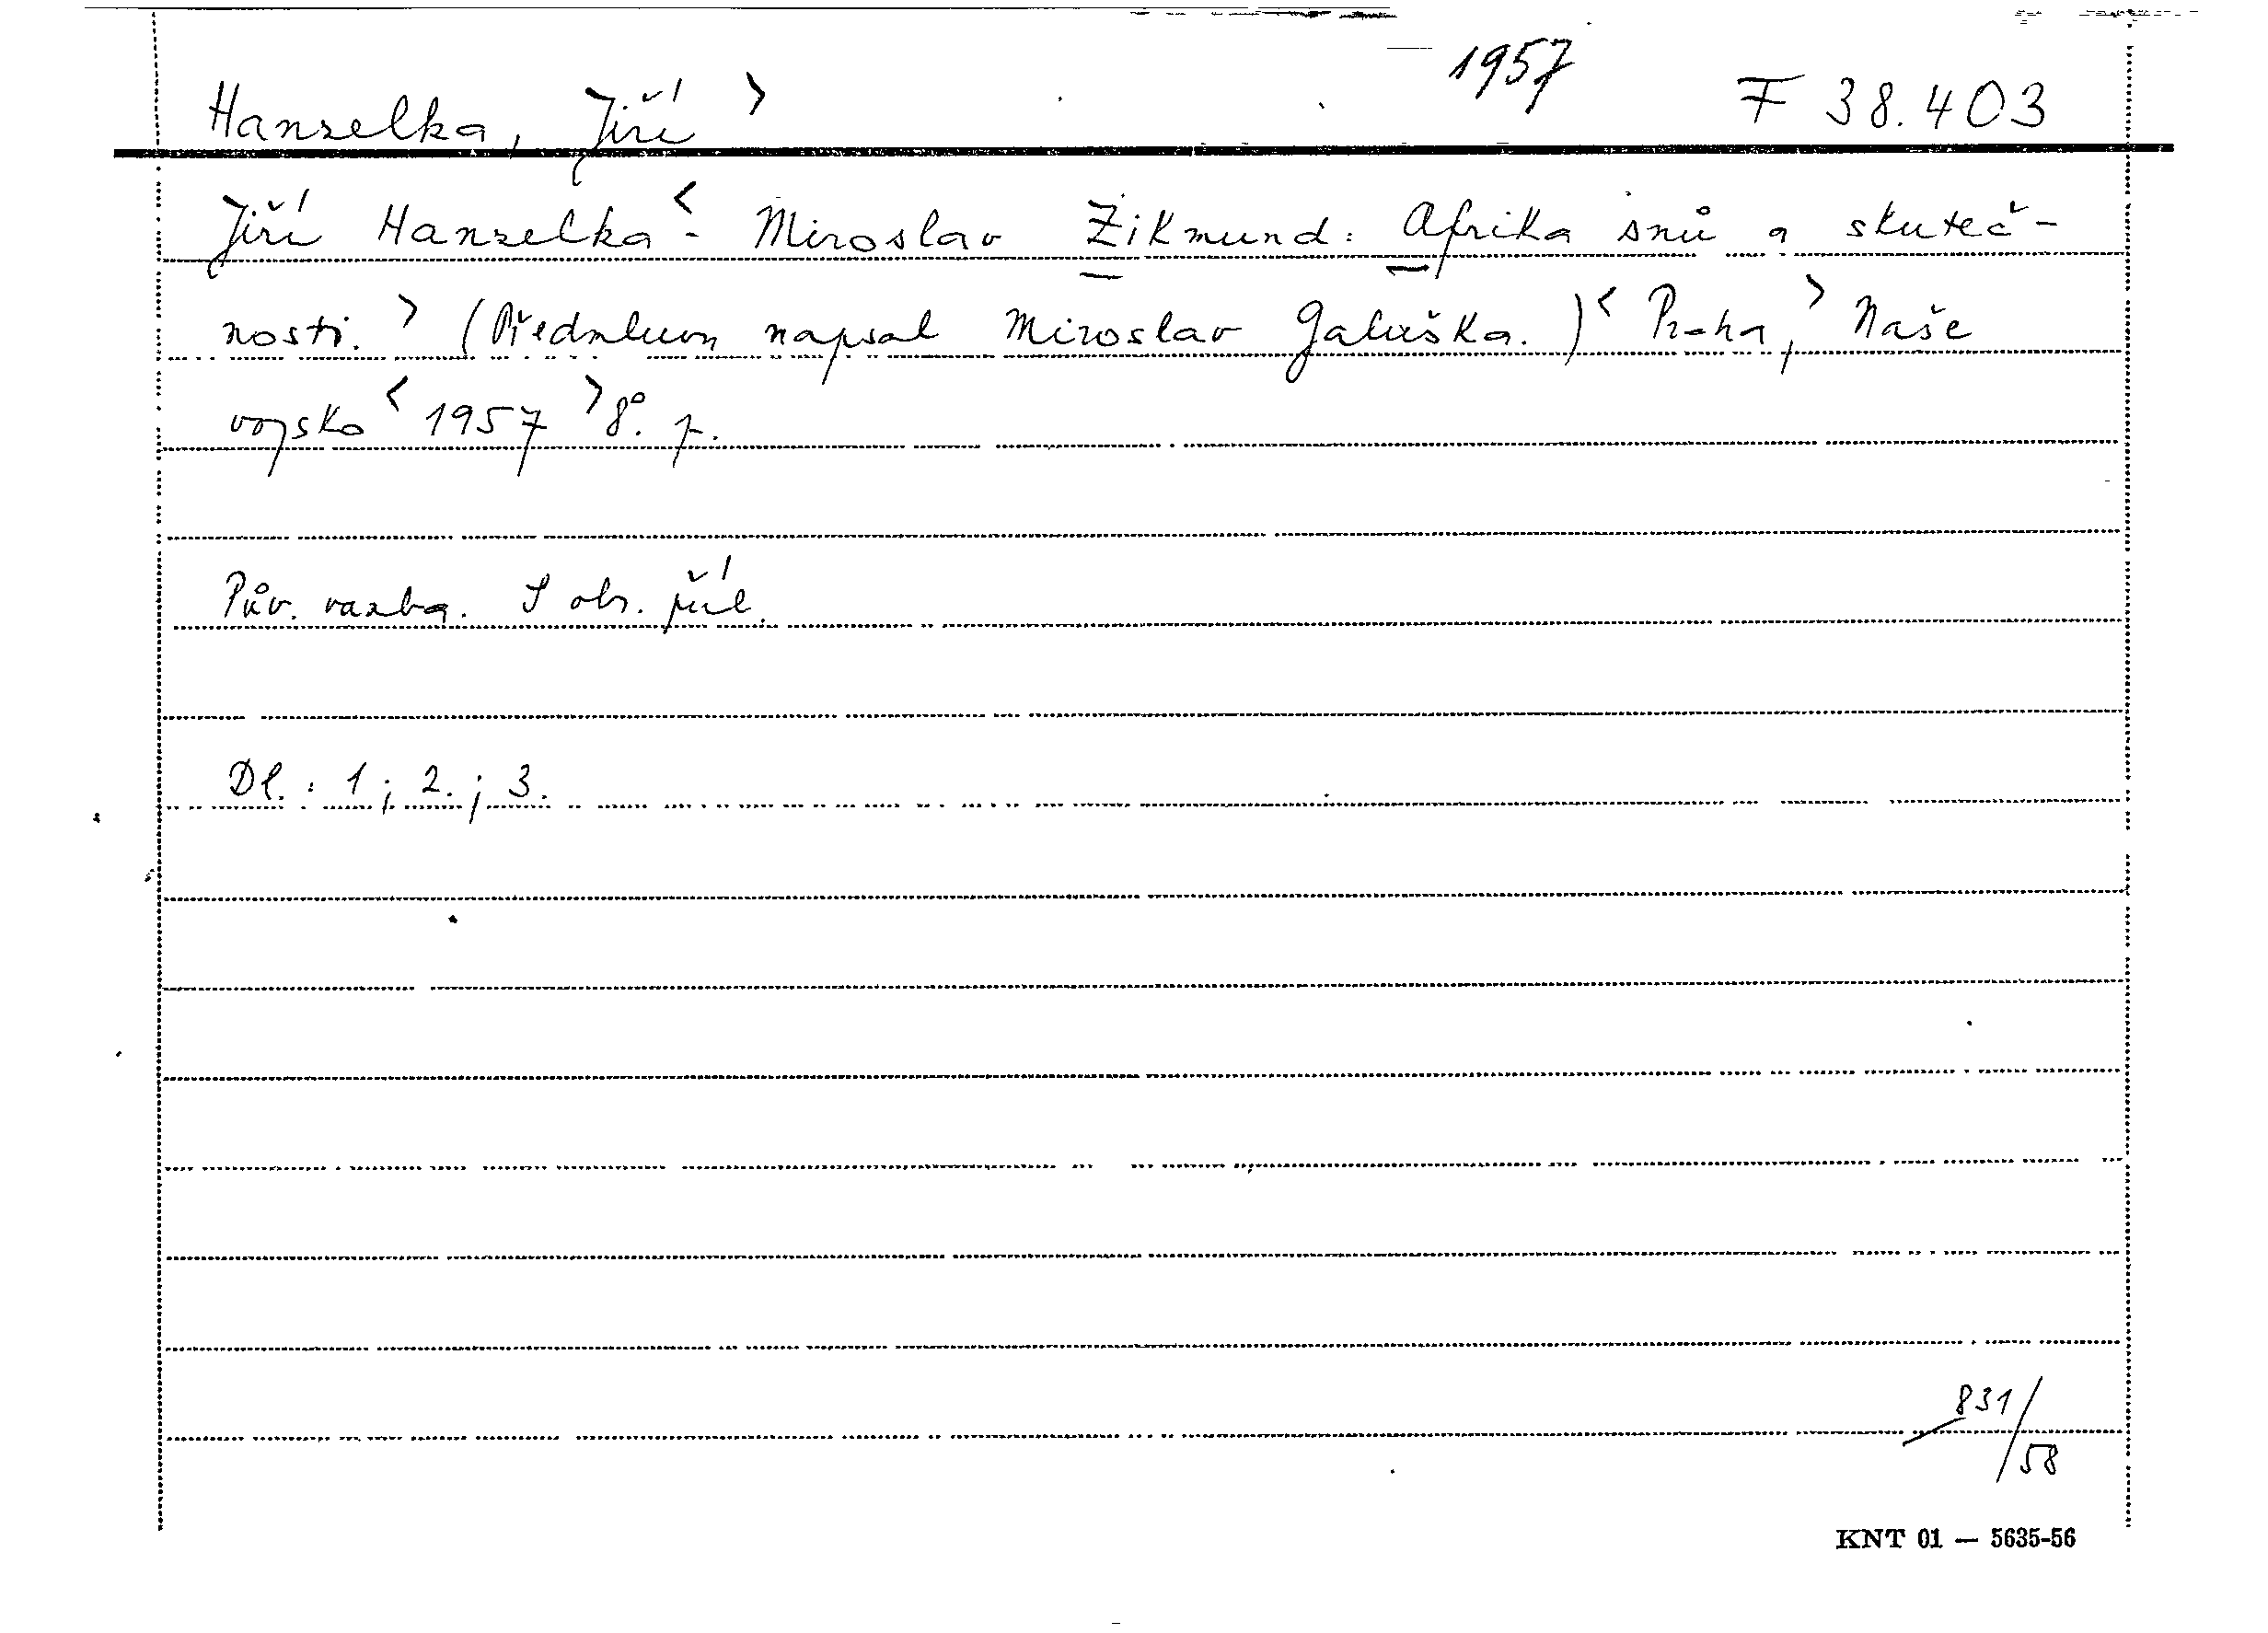 1957
Hanzelka, Jiří > F 38.403
Jiří Hanzelka < - Miroslav Zikmund: Afrika snů a skuteč-
nosti. > (Předmluvu napsal Miroslav Galuška.) < Praha, > Naše
vojsko < 1957 > 8°. p.
Pův. vazba. S obr. příl.
Dl.: 1; 2.; 3.
831/58
KNT 01 — 5635-56